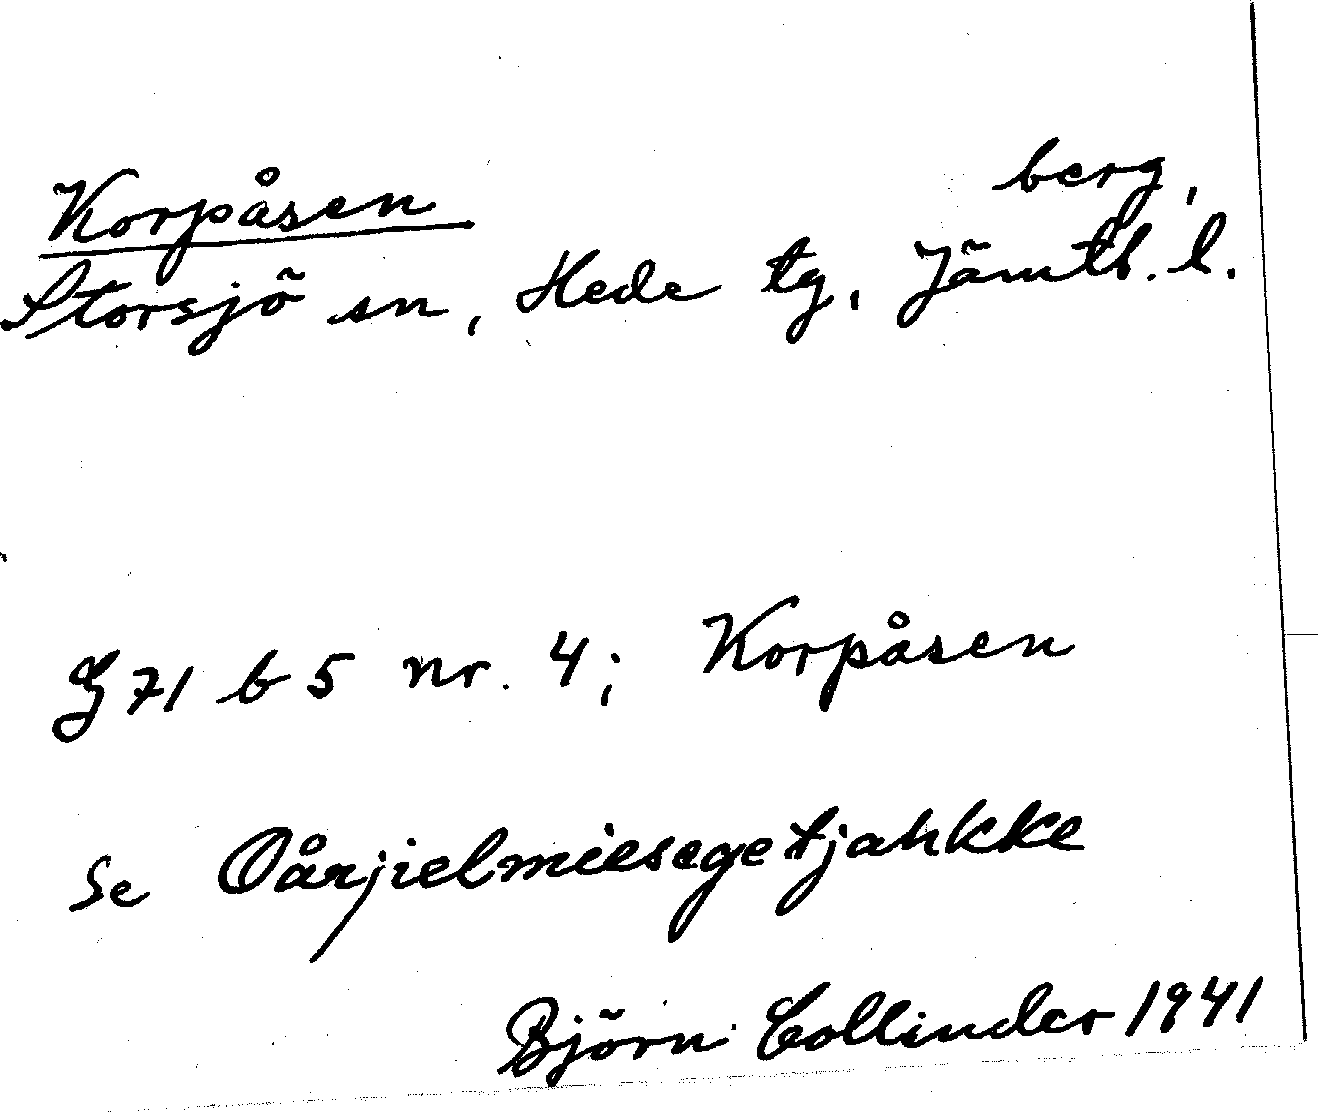 Korpåsen berg,
Storsjö sn, Hede tg, Jämtl. l.
G 71 b 5 nr. 4; Korpåsen
Se Oårjielmiesegetjahkke
Björn Collinder 1941